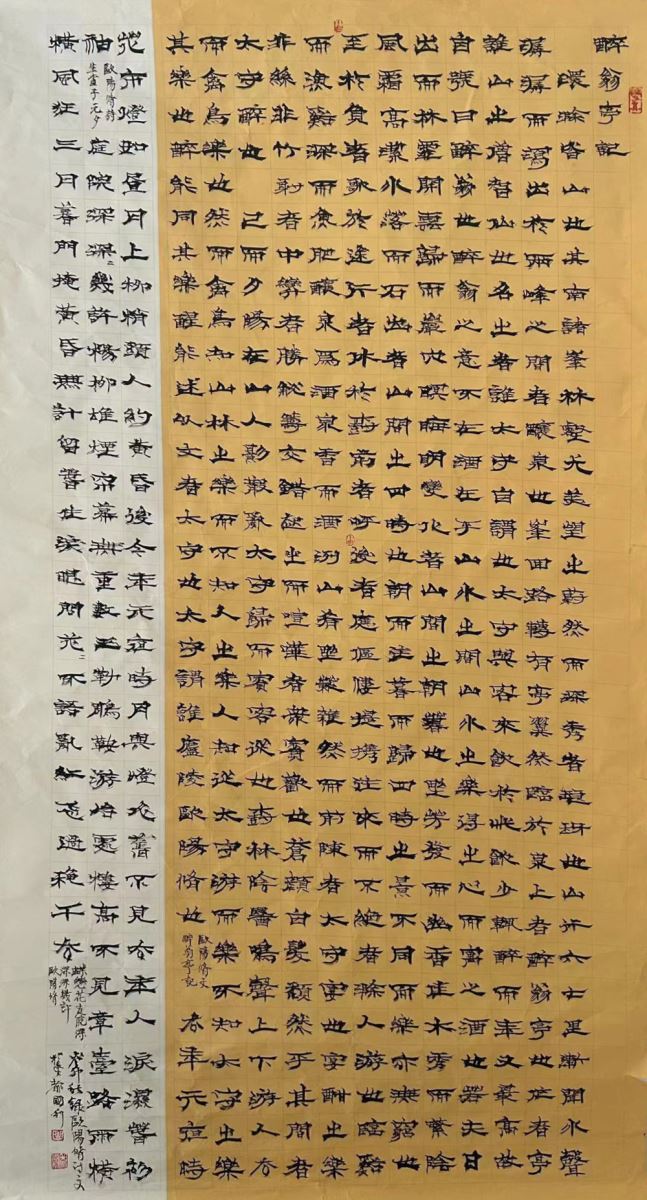 醉翁亭記
環滁皆山也其南諸峯林壑尤美望之蔚然而深秀者瑯琊也山行六七里漸聞水聲
潺潺而瀉出於兩峰之間者釀泉也峯回路轉有亭翼然臨於泉上者醉翁亭也作者亭
誰山之僧智仙也名之者誰太守自謂也太守與客來飲於此飲少輒醉而年又最高故
自號曰醉翁也醉翁之意不在酒在乎山水之間山水之樂得之心而寓之酒也若夫日
出而林霏開雲歸而巖穴暝晦明變化者山間之朝暮也野芳發而幽香佳木秀而繁陰
風霜高潔水落而石出者山間之四時也朝而往暮而歸四時之景不同而樂亦無窮也
至於負者歌於途行者休於樹前者呼後者應傴僂提攜往來而不絕者滁人游也臨谿
而漁谿深而魚肥釀泉為酒泉香而酒洌山肴野蔌雜然而前陳者太守宴也宴酣之樂
非絲非竹射者中弈者勝觥籌交錯起坐而諠譁者衆賓歡也蒼顏白髮頹然乎其間者
太守醉也已而夕陽在山人影散亂太守歸而賓客從也樹林陰翳鳴聲上下游人去
而禽鳥樂也然而禽鳥知山林之樂而不知人之樂人知從太守游而樂不知太守之樂
其樂也醉能同其樂醒能述以文者太守也太守謂誰廬陵歐陽脩也
歐陽脩文
醉翁亭記
去年元夜時
花市燈如晝月上柳梢頭人約黃昏後今年元夜時月與燈依舊不見去年人淚濕春衫
袖
歐陽脩詩
生查子元夕
庭院深深〻幾許楊柳堆煙簾幕無重數玉勒雕鞍游冶處樓高不見章臺路雨橫
橫風狂三月暮門掩黃昏無計留春住淚眼問花〻不語亂紅飛過鞦韆去
蝶戀花庭院深
深深幾許
歐陽脩
癸卯秋錄歐陽脩詩文